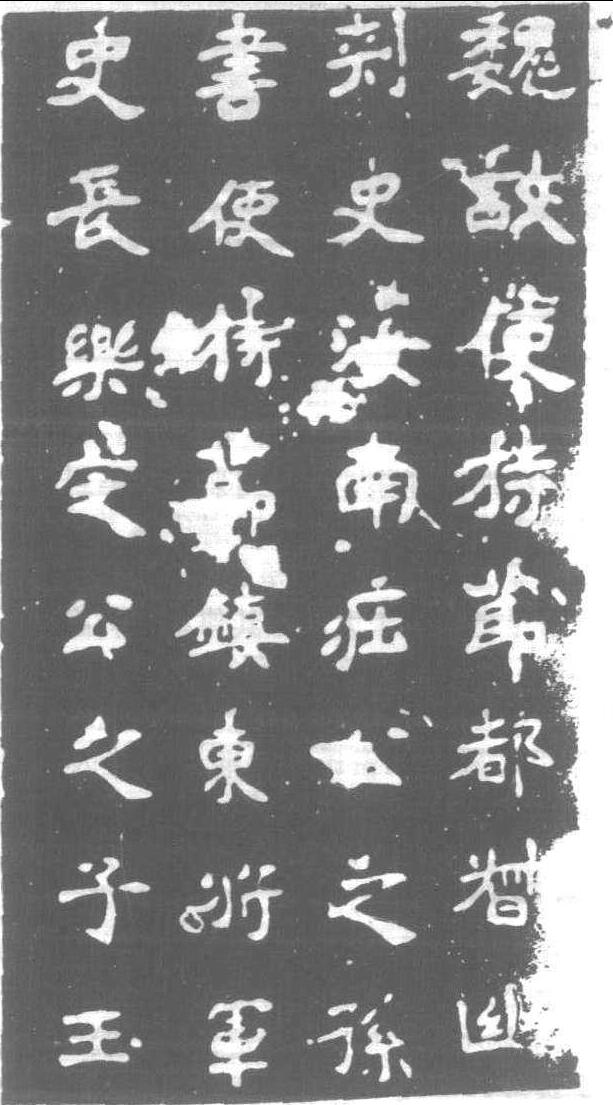 魏故使持節都督幽
刺史汝南莊公之孫
書使持節鎮東將軍
史長樂定公之子玉